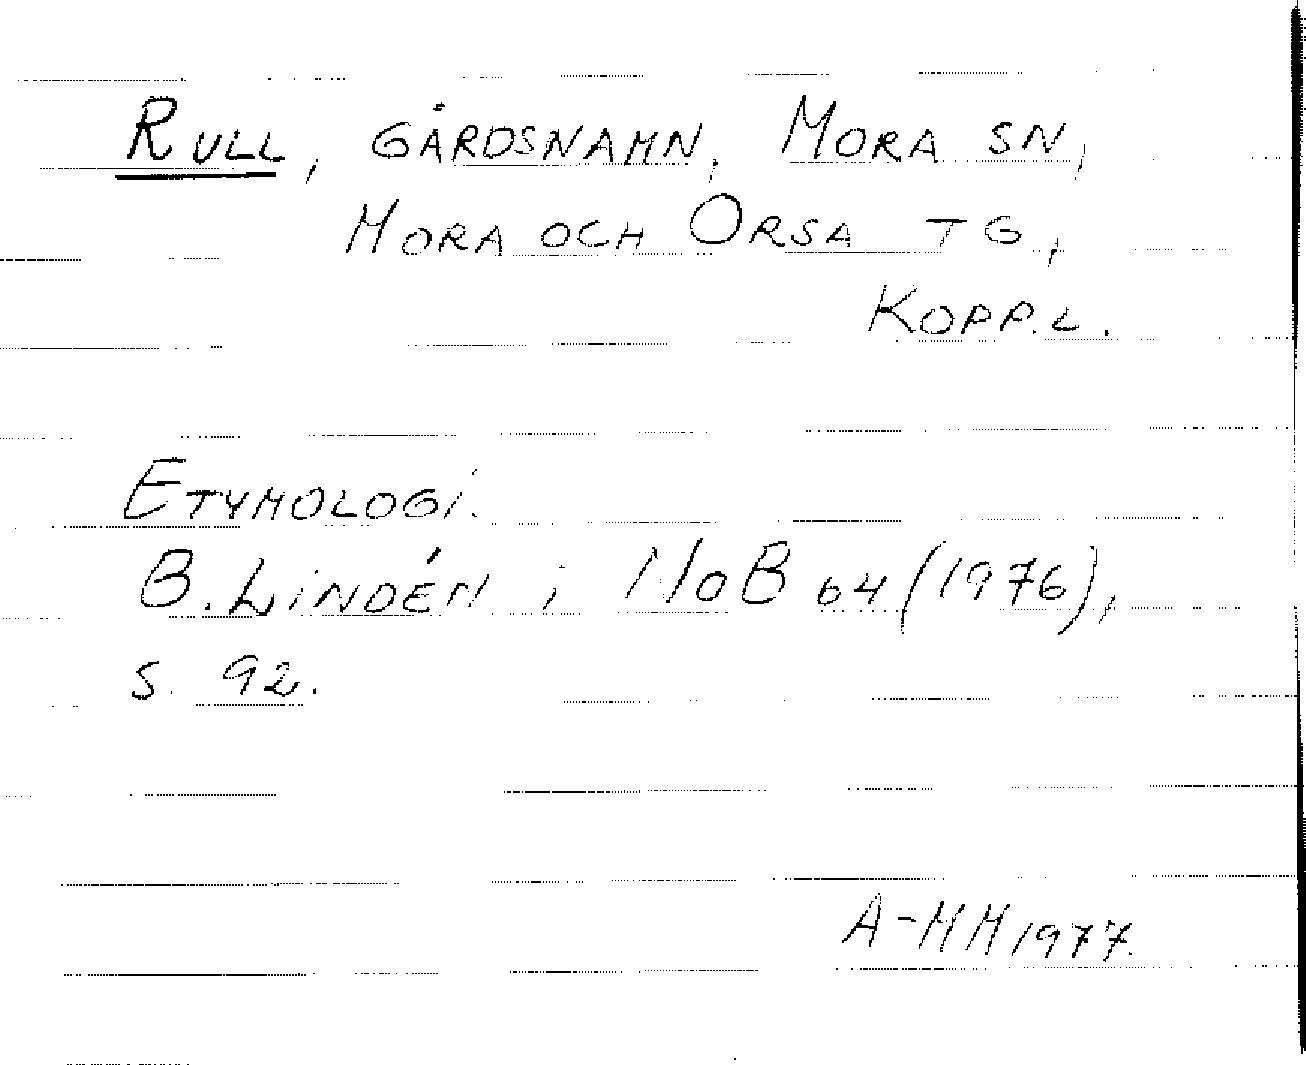 RULL, GÅRDSNAMN, MORA SN,
MORA OCH ORSA TG,
KOPP.L.
ETYMOLOGI.
B. LINDÉN i NoB 64 (1976),
S. 92.
A-MM 1977.